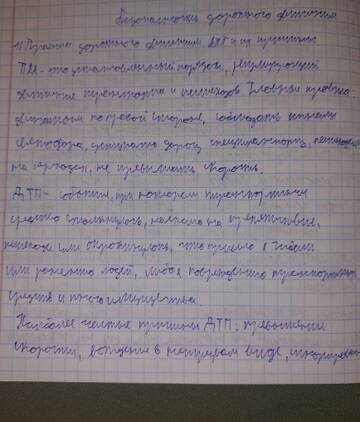 Безопасность дорожного движения
1) Правила дорожного движения. ДТП и их причины
ПДД - это установленный порядок, регулирующий
движение транспорта и пешеходов. Главная правила:
по правой стороне, соблюдать сигналы
светофора, уступать дорогу спецтранспорту,
на переходах, не превышать скорость.
ДТП - событие, при котором транспортные
средство столкнулось, наехало на препятствие,
пешехода или опрокинулось, что привело к гибели
или ранению людей, либо повреждению транспортных
средств и иного имущества.
Наиболее частые причины ДТП: превышение
скорости, вождение в нетрезвом виде,